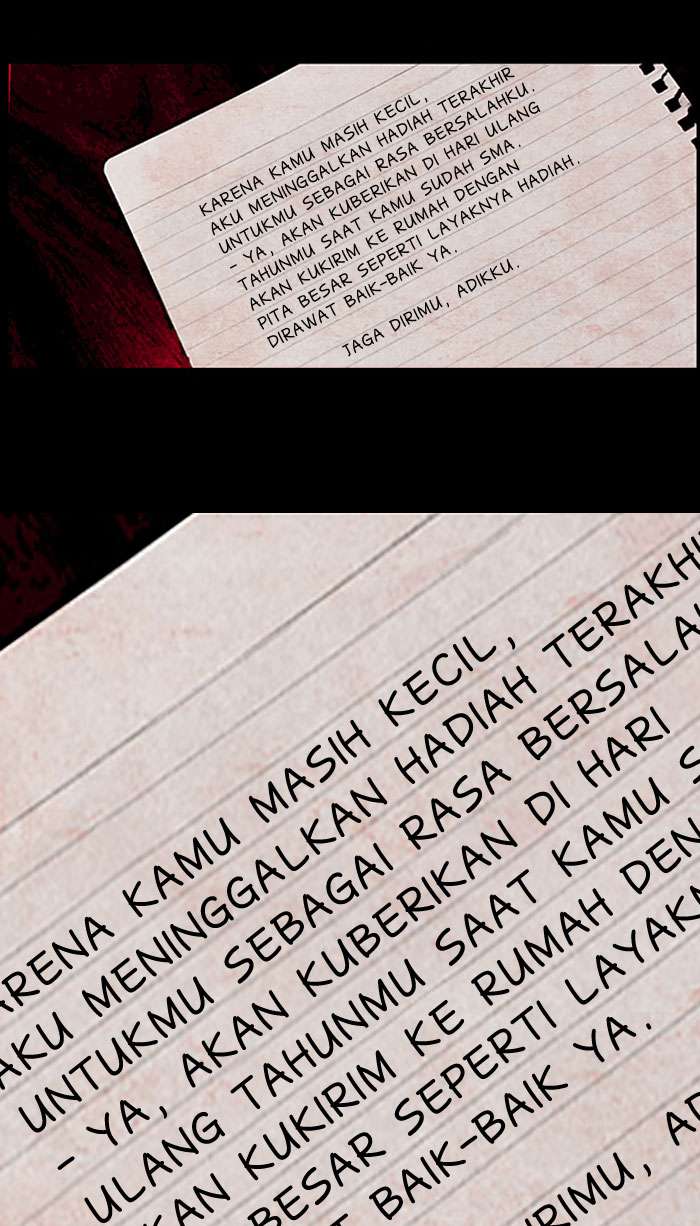 KARENA KAMU MASIH KECIL,
AKU MENINGGALKAN HADIAH TERAKHIR
UNTUKMU SEBAGAI RASA BERSALAHKU.
- YA, AKAN KUBERIKAN DI HARI ULANG
TAHUNMU SAAT KAMU SUDAH SMA.
AKAN KUKIRIM KE RUMAH DENGAN
PITA BESAR SEPERTI LAYAKNYA HADIAH.
DIRAWAT BAIK-BAIK YA.
JAGA DIRIMU, ADIKKU.
ARENA KAMU MASIH KECIL,
AKU MENINGGALKAN HADIAH TERAKHI
UNTUKMU SEBAGAI RASA BERSALA
- YA, AKAN KUBERIKAN DI HARI
ULANG TAHUNMU SAAT KAMU S
KAN KUKIRIM KE RUMAH DEN
BESAR SEPERTI LAYAKN
T BAIK-BAIK YA.
IRIMU, AD